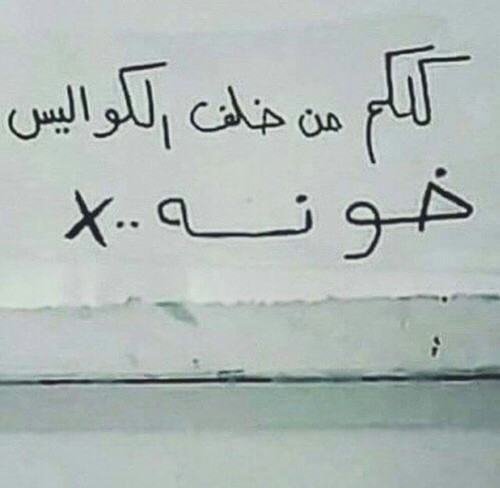 كلكم من خلف الكواليس
خونه..X